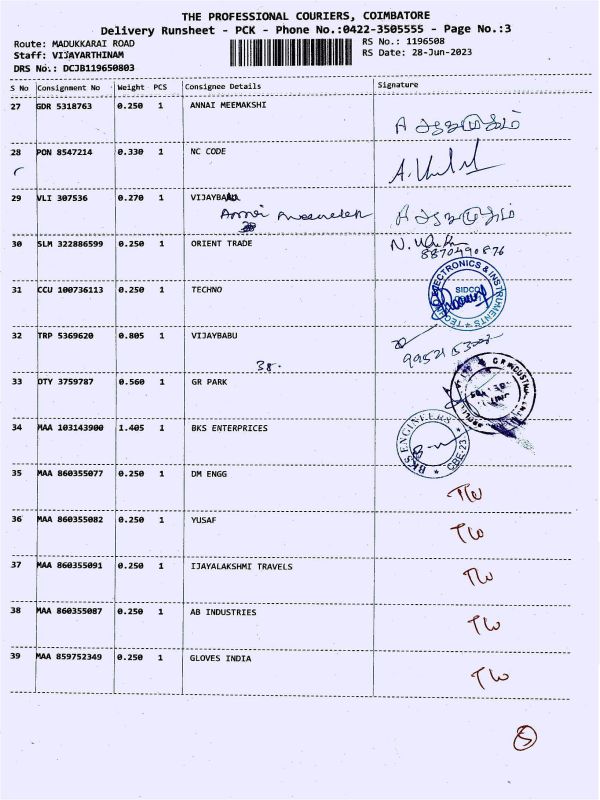 THE PROFESSIONAL COURIERS, COIMBATORE
Delivery Runsheet - PCK - Phone No.:0422-3505555 - Page No.:3
Route: MADUKKARAI ROAD
RS No.: 1196508
Staff: VIJAYARTHINAM
RS Date: 28-Jun-2023
DRS No.: DCJB119650803
S No Consignment No Weight PCS Consignee Details Signature
27 GDR 5318763 0.250 1 ANNAI MEEMAKSHI
28 PON 8547214 0.330 1 NC CODE
29 VLI 307536 0.270 1 VIJAYBABU
30 SLM 322886599 0.250 1 ORIENT TRADE
8870490876
31 CCU 100736113 0.250 1 TECHNO
ELECTRONICS & INSTRUMENTS
SIDCO
32 TRP 5369620 0.805 1 VIJAYBABU
38.
33 DTY 3759787 0.560 1 GR PARK
34 MAA 103143900 1.405 1 BKS ENTERPRICES
BKS ENGINEERS
CBE-23
35 MAA 860355077 0.250 1 DM ENGG
TW
36 MAA 860355082 0.250 1 YUSAF
TW
37 MAA 860355091 0.250 1 IJAYALAKSHMI TRAVELS
TW
38 MAA 860355087 0.250 1 AB INDUSTRIES
TW
39 MAA 859752349 0.250 1 GLOVES INDIA
TW
5